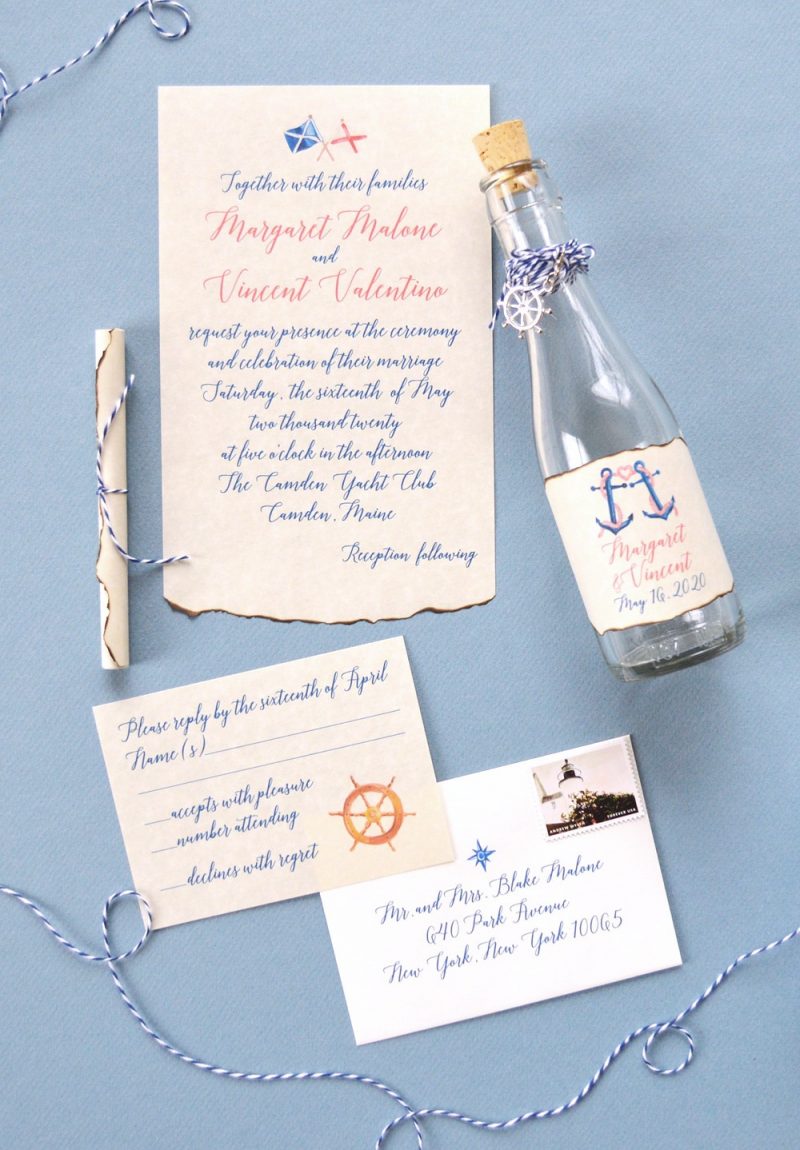 Together with their families
Margaret Malone
and
Vincent Valentino
request your presence at the ceremony
and celebration of their marriage
Saturday, the sixteenth of May
two thousand twenty
at five o'clock in the afternoon
The Camden Yacht Club
Camden, Maine
Reception following
Margaret
& Vincent
May 16, 2020
Please reply by the sixteenth of April
Name(s)
accepts with pleasure
number attending
declines with regret
ANDREW WYETH
FOREVER USA
Mr. and Mrs. Blake Malone
640 Park Avenue
New York, New York 10065